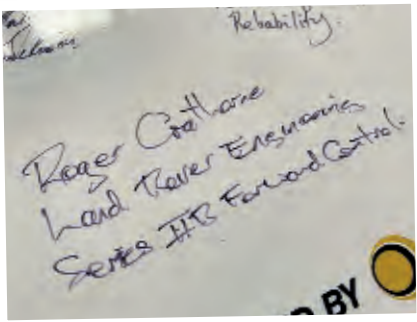 Reliability.
Roger Crathorne
Land Rover Engineering
Series IIB Forward Control.
D BY